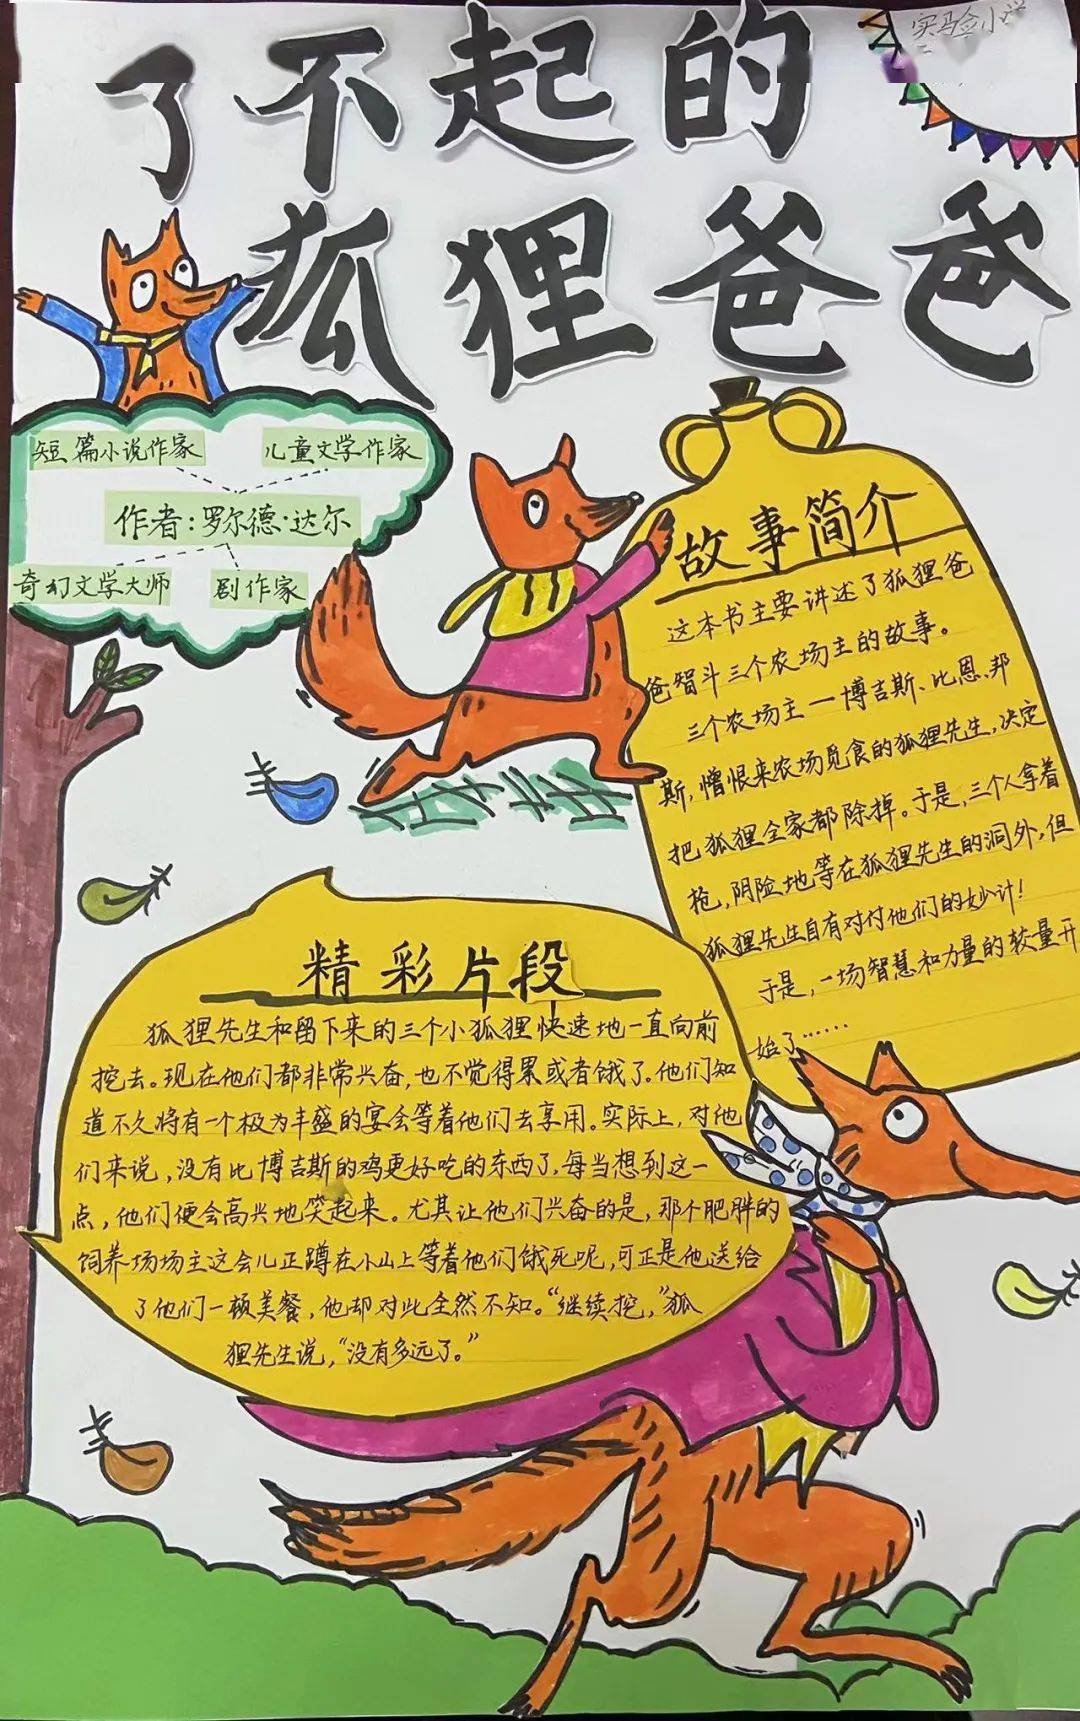 实验剑小学
了不起的
狐狸爸爸
短篇小说作家
儿童文学作家
作者:罗尔德·达尔
奇幻文学大师
剧作家
故事简介
这本书主要讲述了狐狸爸
爸智斗三个农场主的故事。
三个农场主一博吉斯、比恩、邦
斯,憎恨来农场觅食的狐狸先生,决定
把狐狸全家都除掉。于是,三个人拿着
枪,阴险地等在狐狸先生的洞外,但
狐狸先生自有对付他们的妙计!
于是,一场智慧和力量的较量开
始了……
精彩片段
狐狸先生和留下来的三个小狐狸快速地一直向前
挖去。现在他们都非常兴奋,也不觉得累或者饿了。他们知
道不久将有一个极为丰盛的宴会等着他们去享用。实际上,对他
们来说,没有比博吉斯的鸡更好吃的东西了,每当想到这一
点,他们便会高兴地笑起来。尤其让他们兴奋的是,那个肥胖的
饲养场场主这会儿正蹲在小山上等着他们饿死呢,可正是他送给
了他们一顿美餐,他却对此全然不知。“继续挖,”狐
狸先生说,“没有多远了。”